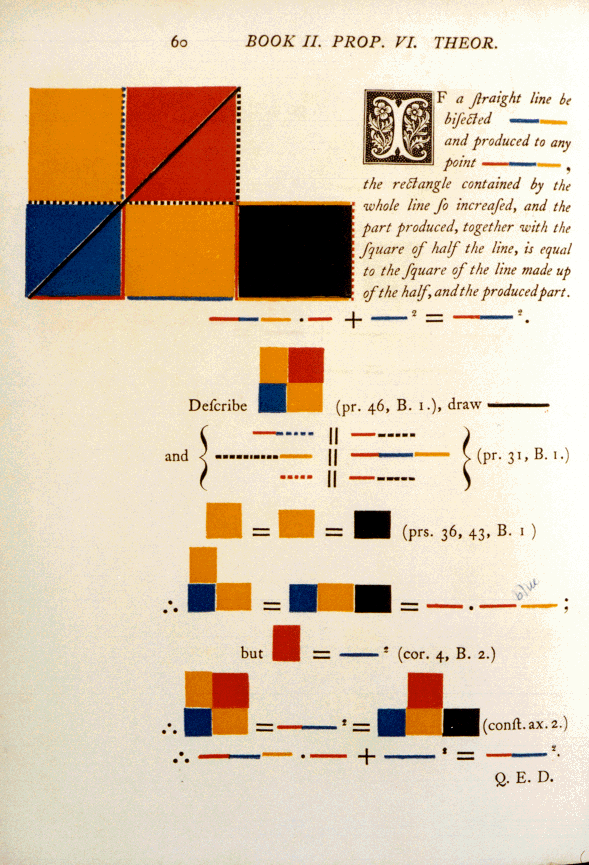 60 BOOK II. PROP. VI. THEOR.
IF a ſtraight line be
biſected
and produced to any
point ,
the rectangle contained by the
whole line ſo increaſed, and the
part produced, together with the
ſquare of half the line, is equal
to the ſquare of the line made up
of the half, and the produced part.
· + ² = ².
Deſcribe (pr. 46, B. 1.), draw
and { || || || } (pr. 31, B. 1.)
= = (prs. 36, 43, B. 1 )
blue
∴ = = · ;
but = ² (cor. 4, B. 2.)
∴ = ² = (conſt. ax. 2.)
∴ · + ² = ².
Q. E. D.